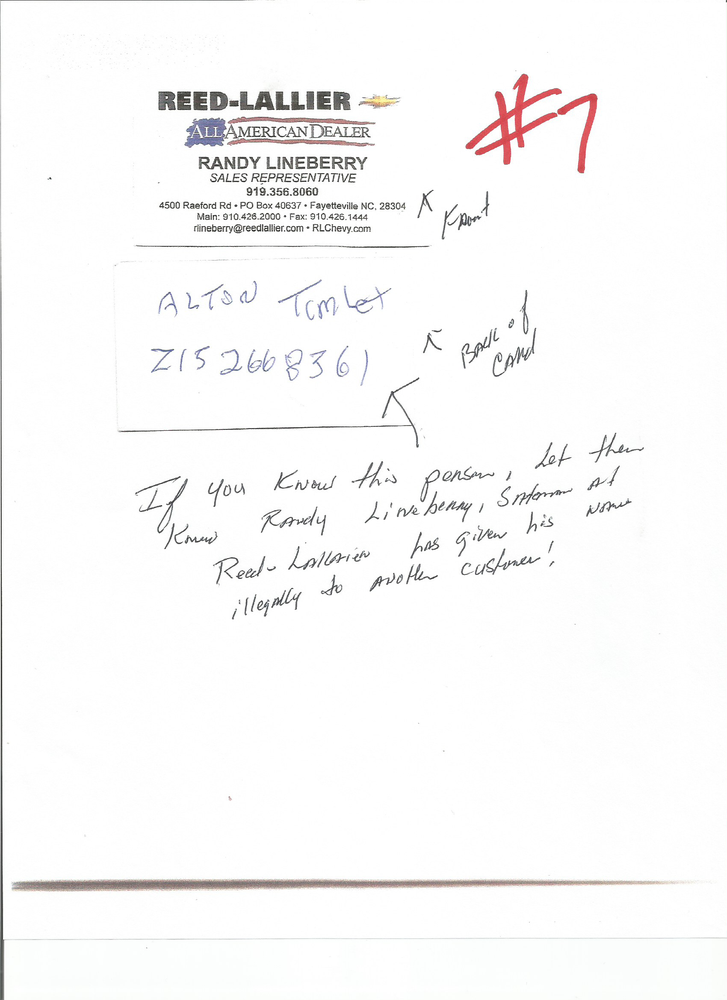 REED-LALLIER
ALL AMERICAN DEALER
#7
RANDY LINEBERRY
SALES REPRESENTATIVE
919.356.8060
4500 Raeford Rd • PO Box 40637 • Fayetteville NC, 28304
Main: 910.426.2000 • Fax: 910.426.1444
rlineberry@reedlallier.com • RLChevy.com
Front
ALTON
Z152668361
Back of
Card
If you know this person, let them
know Randy Lineberry, at
Reed- has given his name
illegally to another customer!